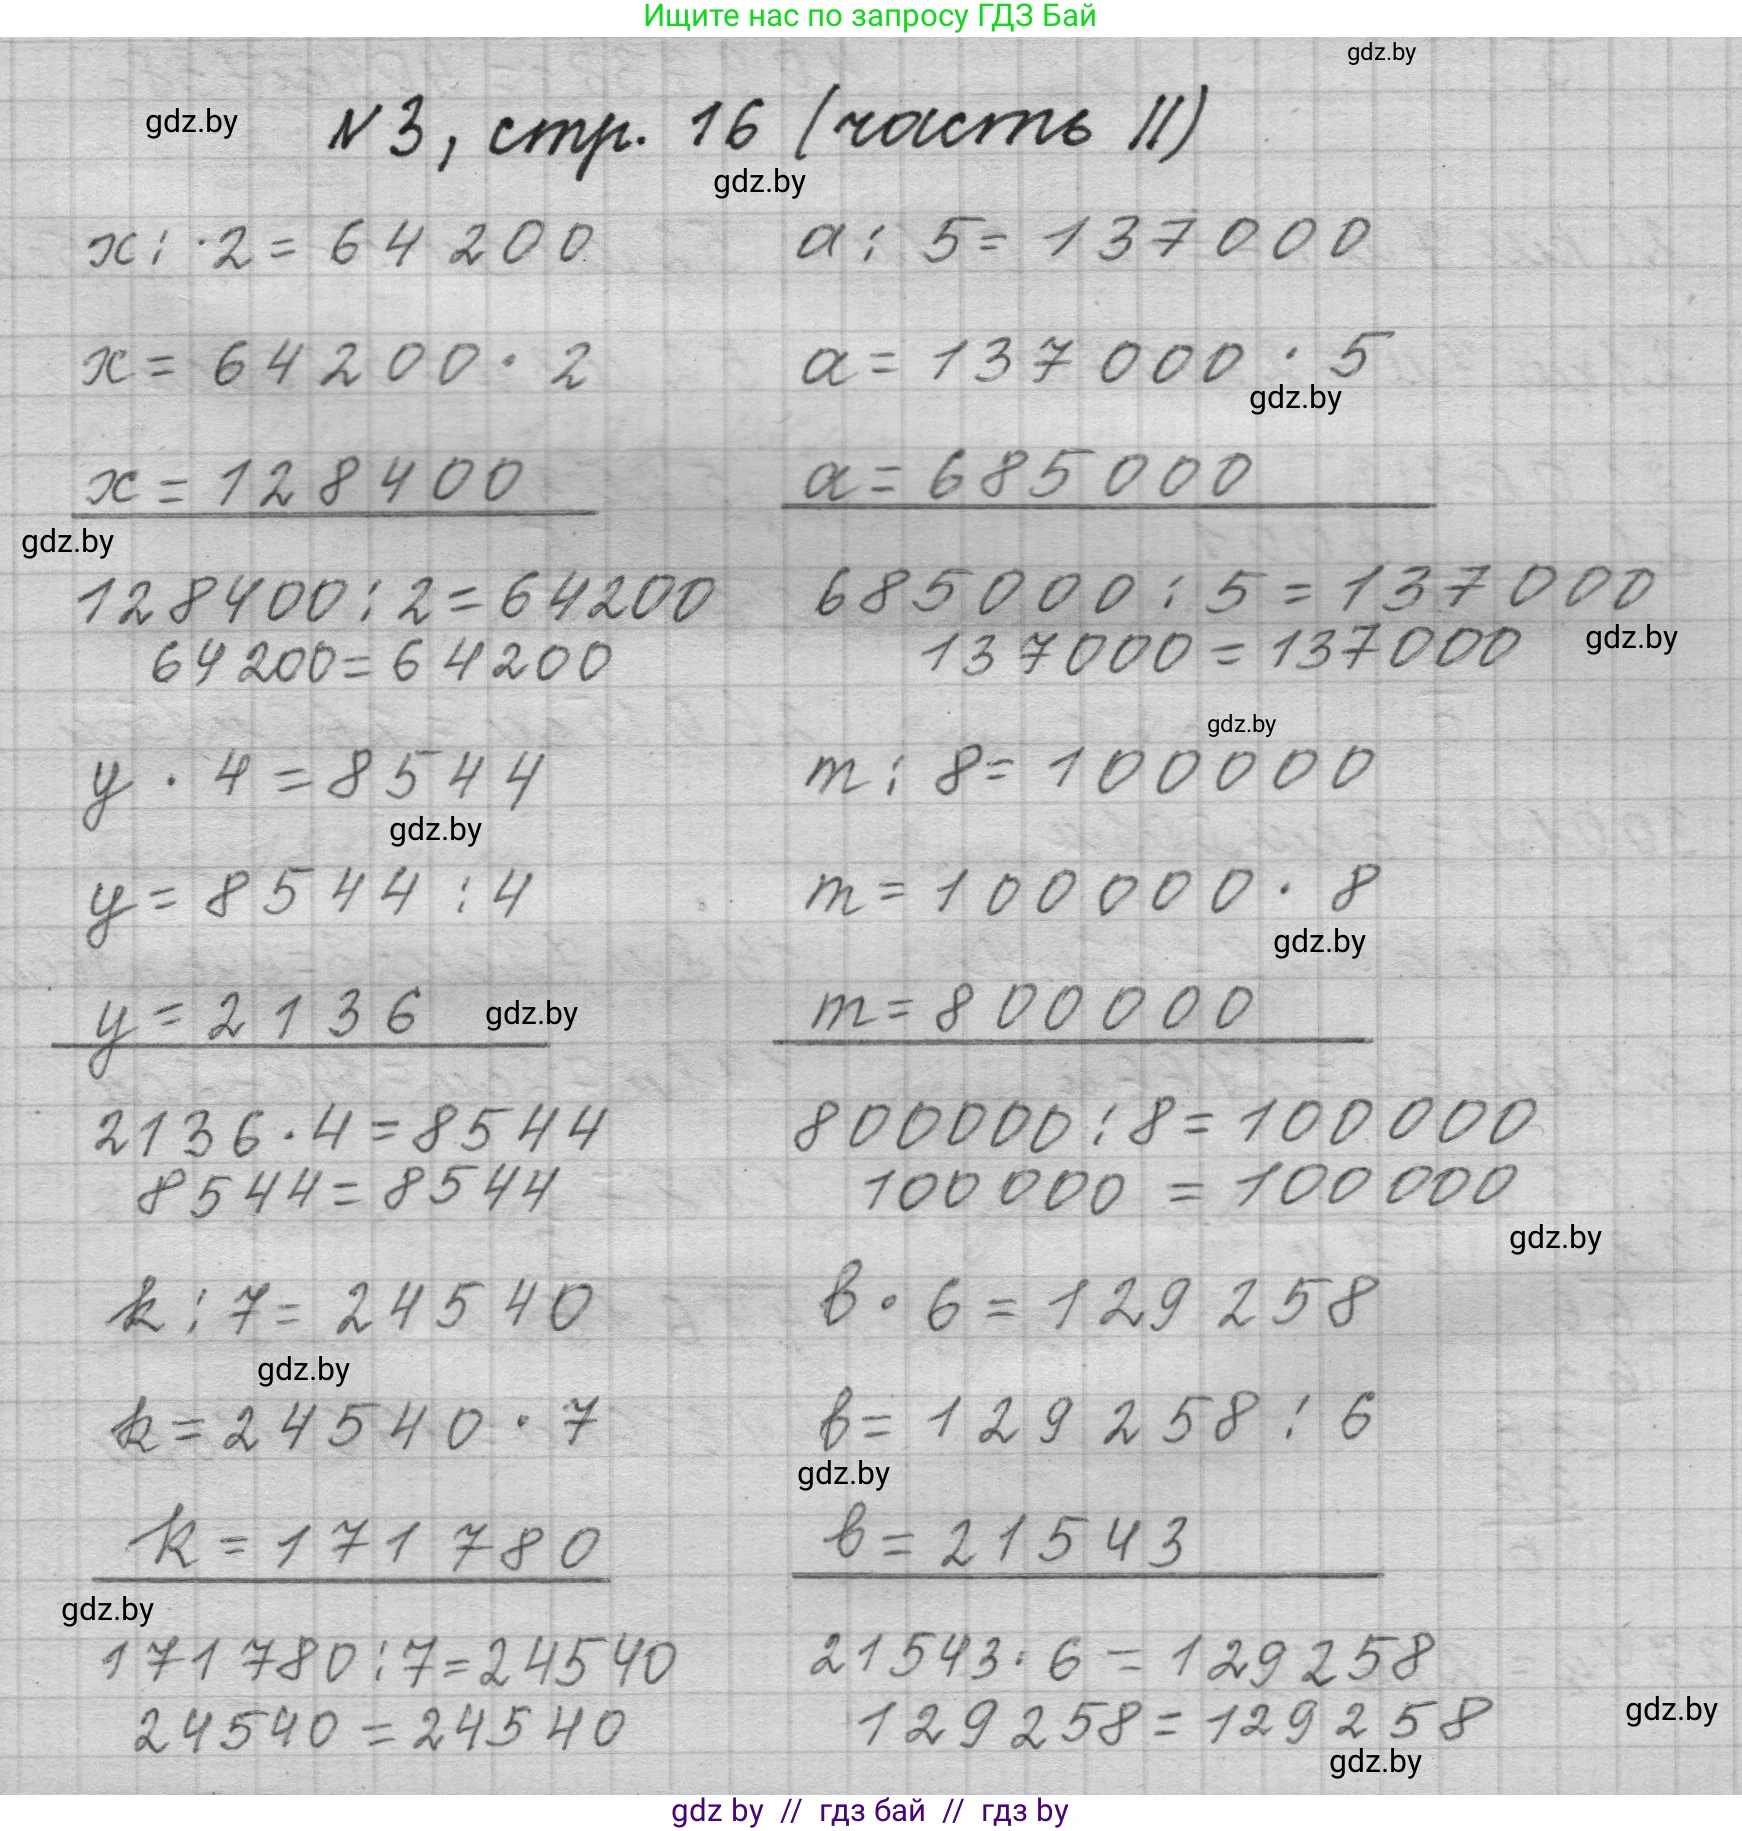 Ищите нас по запросу ГДЗ Бай
gdz.by
gdz.by
N3, стр. 16 (часть II)
gdz.by
x : · 2 = 64 200
a : 5 = 137 000
x = 64 200 · 2
a = 137 000 · 5
gdz.by
x = 128400
a = 685000
gdz.by
128400 : 2 = 64200
64200 = 64200
685000 : 5 = 137000
137000 = 137000
gdz.by
gdz.by
y · 4 = 8544
m : 8 = 100000
gdz.by
y = 8544 : 4
m = 100000 · 8
gdz.by
y = 2136
gdz.by
m = 800000
2136 · 4 = 8544
8544 = 8544
800000 : 8 = 100000
100000 = 100000
gdz.by
k : 7 = 24540
b · 6 = 129 258
gdz.by
k = 24540 · 7
b = 129 258 : 6
gdz.by
k = 171 780
b = 21543
gdz.by
171 780 : 7 = 24540
24540 = 24540
21543 · 6 = 129258
129258 = 129258
gdz.by
gdz.by
gdz by // гдз бай // гдз by